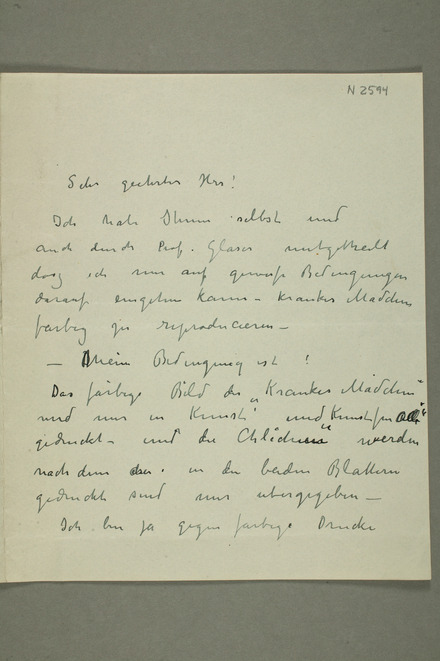 N 2594
Sehr geehrter Herr!
Ich habe Ihnen selbst und
auch durch Prof. Glaser mitgetheilt
dasz ich nur auf gewisse Bedingungen
darauf eingehen kann – krankes Mädchen
farbig zu reproducieren –
– Meine Bedingung ist !
Das farbige Bild des „Krankes Mädchen"
wird nur in „Kunst" und Kunst für Alle"
gedruckt – und die Clichéen werden
nach dem in den beiden Blättern
gedruckt sind mir übergegeben –
Ich bin ja gegen farbige Drucke